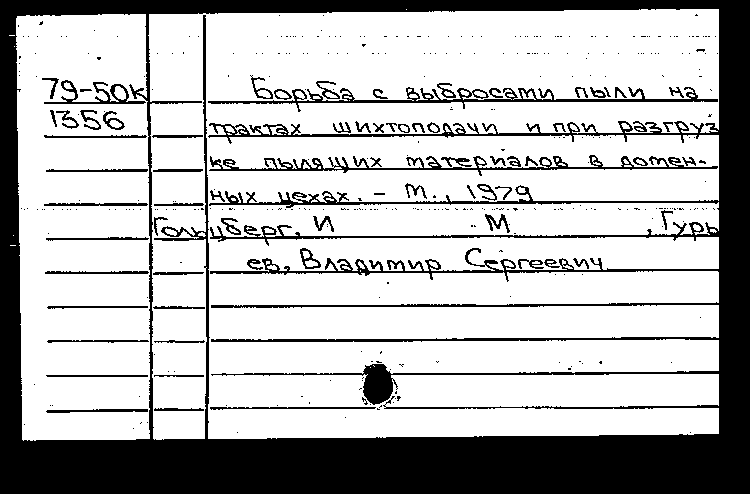 79-50к Борьба с выбросами пыли на
1356 трактах шихтоподачи и при разгруз
ке пылящих материалов в домен-
ных цехах. - М., 1979
Гольцберг, И М , Гурь
ев, Владимир Сергеевич